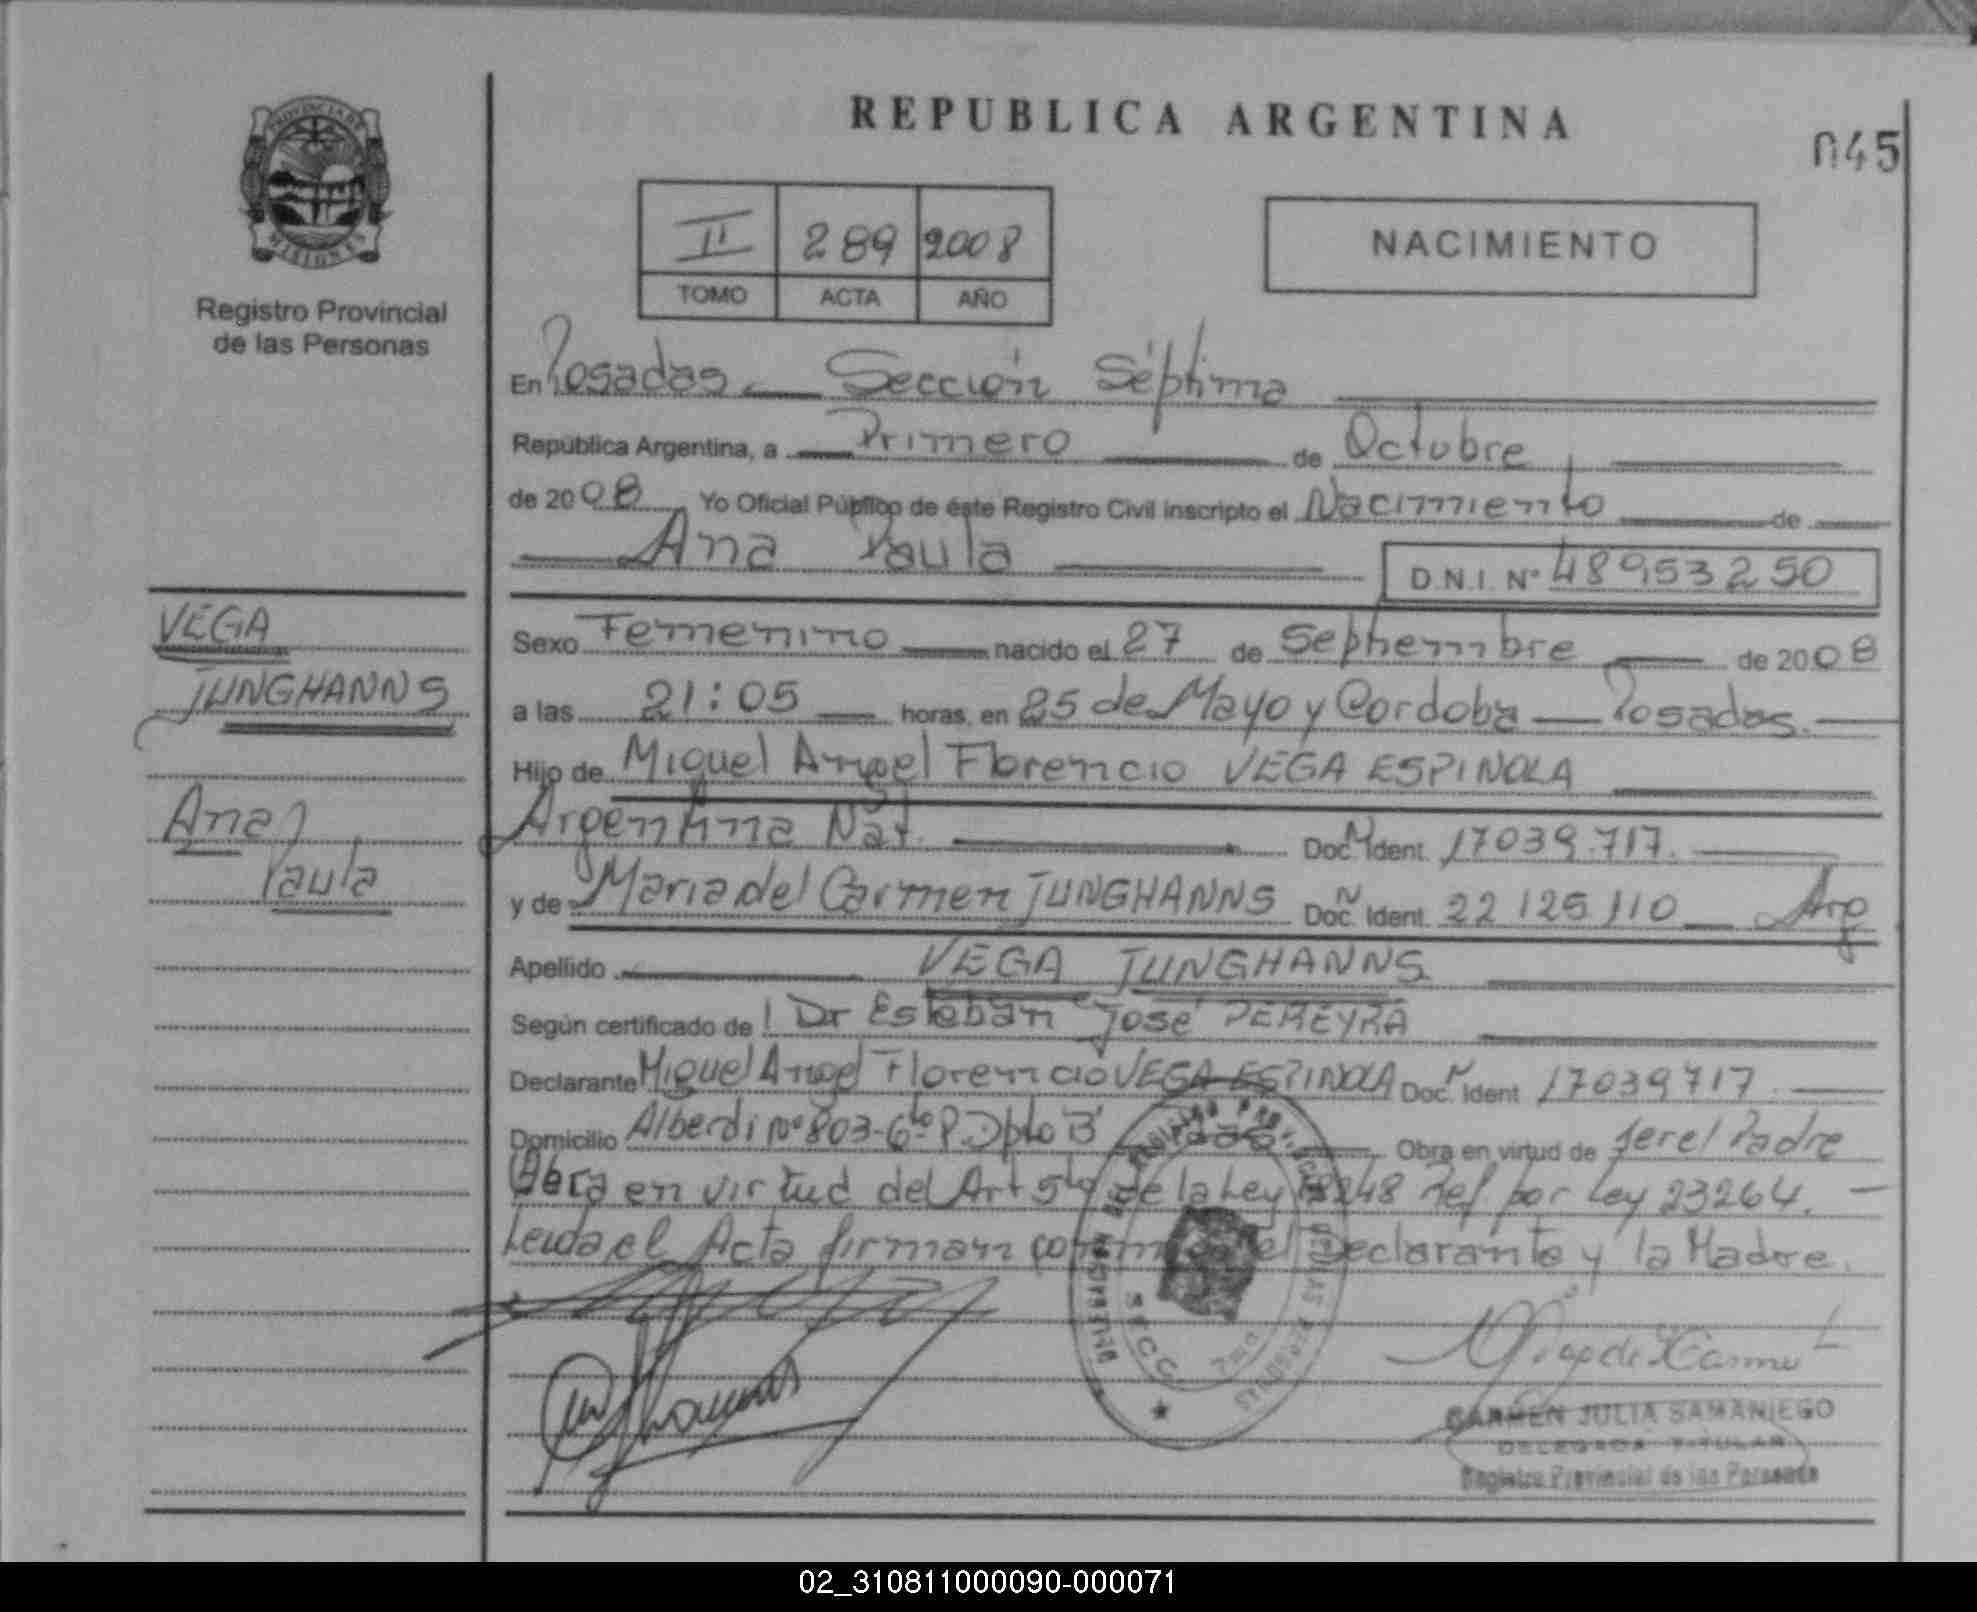 REPUBLICA ARGENTINA
045
PROVINCIA DE
MISIONES
Registro Provincial
de las Personas
II 289 2008
TOMO ACTA AÑO
NACIMIENTO
En Posadas Sección Séptima
República Argentina, a Primero de Octubre
de 2008 Yo Oficial Público de éste Registro Civil inscripto el Nacimiento de
Ana Paula D.N.I. Nº 48953250
VEGA
JUNGHANNS
Ana
Paula
Sexo Femenino nacido el 27 de Septiembre de 2008
a las 21:05 horas, en 25 de Mayo y Cordoba Posadas.
Hijo de Miguel Angel Florencio VEGA ESPINOLA
Argentina Nat. Doc. N Ident. 17039.717.
y de Maria del Carmen JUNGHANNS Doc. N Ident. 22125110 Arg
Apellido VEGA JUNGHANNS
Según certificado de Dr Esteban José PEREYRA
Declarante Miguel Angel Florencio VEGA ESPINOLA Doc. N Ident 17039717
Domicilio Alberdi Nº 803-6to P. Dpto B Obra en virtud de ser el Padre
Obra en virtud del Art 5to de la Ley 18248 Ref por Ley 23264.
Leida el Acta firman el Declarante y la Madre.
SECC. 7ma
CARMEN JULIA SAMANIEGO
DELEGADA TITULAR
Registro Provincial de las Personas
02_310811000090-000071